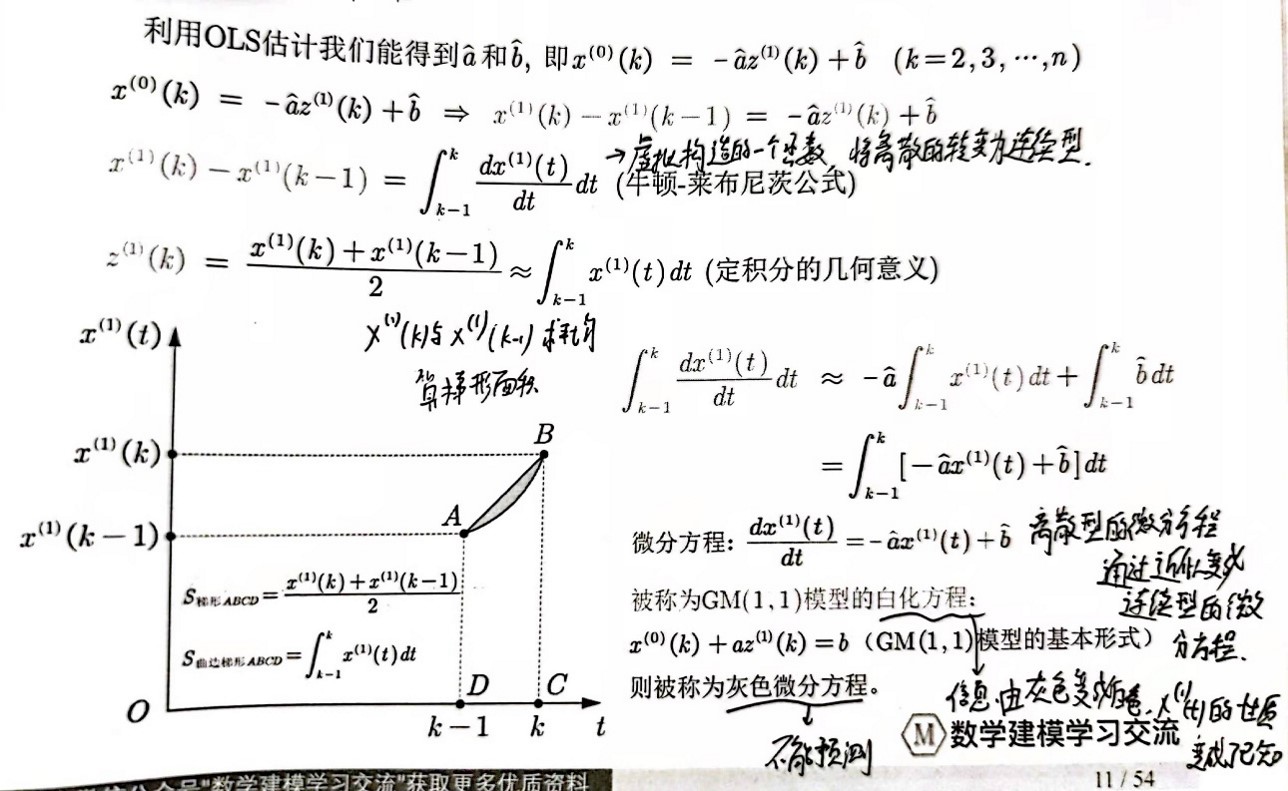 利用OLS估计我们能得到â和b̂, 即x⁽⁰⁾(k) = -âz⁽¹⁾(k)+b̂ (k=2,3,⋯,n)
x⁽⁰⁾(k) = -âz⁽¹⁾(k)+b̂ ⇒ x⁽¹⁾(k)-x⁽¹⁾(k-1) = -âz⁽¹⁾(k)+b̂
→虚拟构造的一个函数, 将离散的转变为连续型.
x⁽¹⁾(k)-x⁽¹⁾(k-1) = ∫_{k-1}^{k} dx⁽¹⁾(t)/dt dt (牛顿-莱布尼茨公式)
z⁽¹⁾(k) = (x⁽¹⁾(k)+x⁽¹⁾(k-1))/2 ≈ ∫_{k-1}^{k} x⁽¹⁾(t)dt (定积分的几何意义)
x⁽¹⁾(k)与x⁽¹⁾(k-1)求平均
算梯形面积
x⁽¹⁾(t)
x⁽¹⁾(k)
B
x⁽¹⁾(k-1)
A
S梯形ABCD = (x⁽¹⁾(k)+x⁽¹⁾(k-1))/2
S曲边梯形ABCD = ∫_{k-1}^{k} x⁽¹⁾(t)dt
D C
O k-1 k t
∫_{k-1}^{k} dx⁽¹⁾(t)/dt dt ≈ -â∫_{k-1}^{k} x⁽¹⁾(t)dt+∫_{k-1}^{k} b̂dt
=∫_{k-1}^{k} [-âx⁽¹⁾(t)+b̂]dt
微分方程: dx⁽¹⁾(t)/dt = -âx⁽¹⁾(t)+b̂
离散型的微分方程
通过近似变成
连续型的微
分方程.
被称为GM(1,1)模型的白化方程:
x⁽⁰⁾(k)+az⁽¹⁾(k)=b (GM(1,1)模型的基本形式)
则被称为灰色微分方程。
信息由灰色变成白色, x⁽¹⁾(t)的性质
变成已知
不能预测
M 数学建模学习交流
公众号"数学建模学习交流"获取更多优质资料
11 / 54